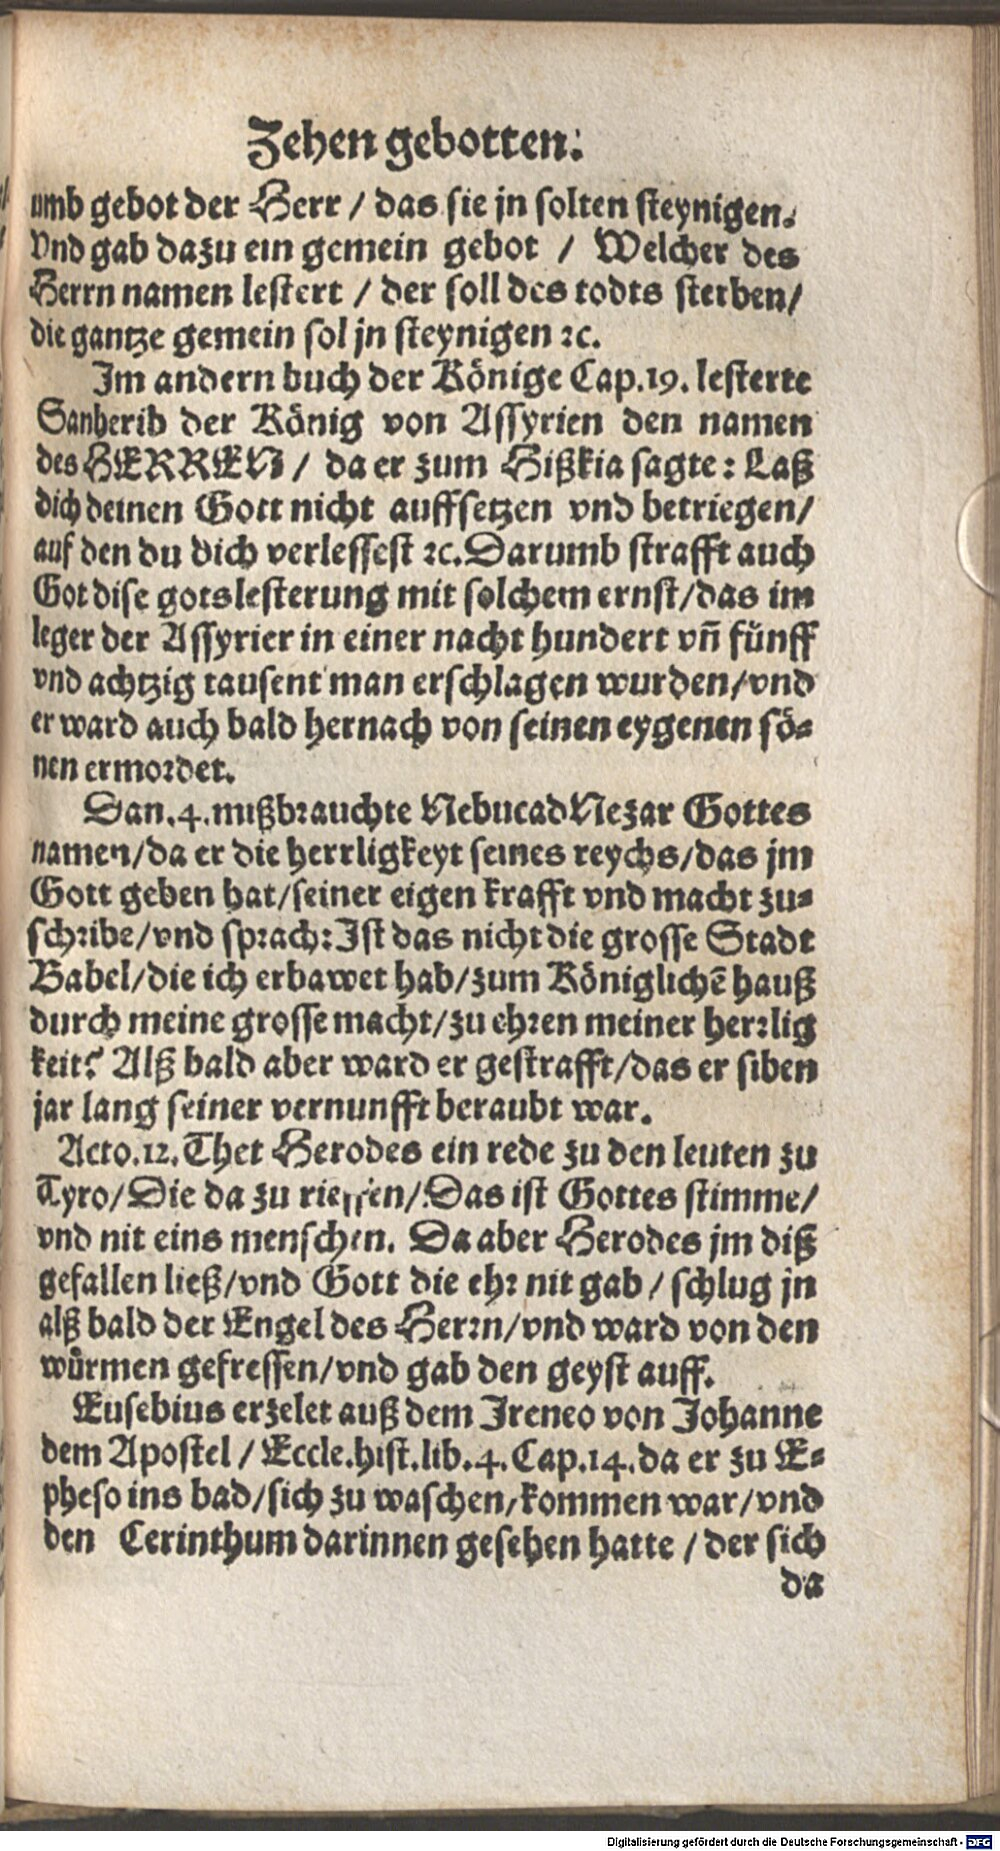 Zehen gebotten.
umb gebot der Herr / das sie jn solten steynigen.
Vnd gab dazu ein gemein gebot / Welcher des
Herrn namen lestert / der soll des todts sterben/
die gantze gemein sol jn steynigen ꝛc.
Im andern buch der Könige Cap.19. lesterte
Sanherib der König von Assyrien den namen
des HERREN / da er zum Hißkia sagte: Laß
dich deinen Gott nicht auffsetzen vnd betriegen/
auf den du dich verlessest ꝛc. Darumb strafft auch
Got dise gotslesterung mit solchem ernst/das im
leger der Assyrier in einer nacht hundert vñ fünff
vnd achtzig tausent man erschlagen wurden/vnd
er ward auch bald hernach von seinen eygenen sö⸗
nen ermordet.
Dan.4. mißbrauchte NebucadNezar Gottes
namen/da er die herrligkeyt seines reychs/das jm
Gott geben hat/seiner eigen krafft vnd macht zu⸗
schribe/vnd sprach: Ist das nicht die grosse Stadt
Babel/die ich erbawet hab/zum Königlichē hauß
durch meine grosse macht/zu ehren meiner herrlig
keit? Alß bald aber ward er gestrafft/das er siben
jar lang seiner vernunfft beraubt war.
Acto.12. Thet Herodes ein rede zu den leuten zu
Tyro/Die da zu rieffen/Das ist Gottes stimme/
vnd nit eins menschen. Da aber Herodes jm diß
gefallen ließ/vnd Gott die ehr nit gab / schlug jn
alß bald der Engel des Herrn/vnd ward von den
würmen gefressen/vnd gab den geyst auff.
Eusebius erzelet auß dem Ireneo von Johanne
dem Apostel / Eccle.hist.lib.4.Cap.14.da er zu E⸗
pheso ins bad/sich zu waschen/kommen war/vnd
den Cerinthum darinnen gesehen hatte / der sich
da
Digitalisierung gefördert durch die Deutsche Forschungsgemeinschaft - DFG